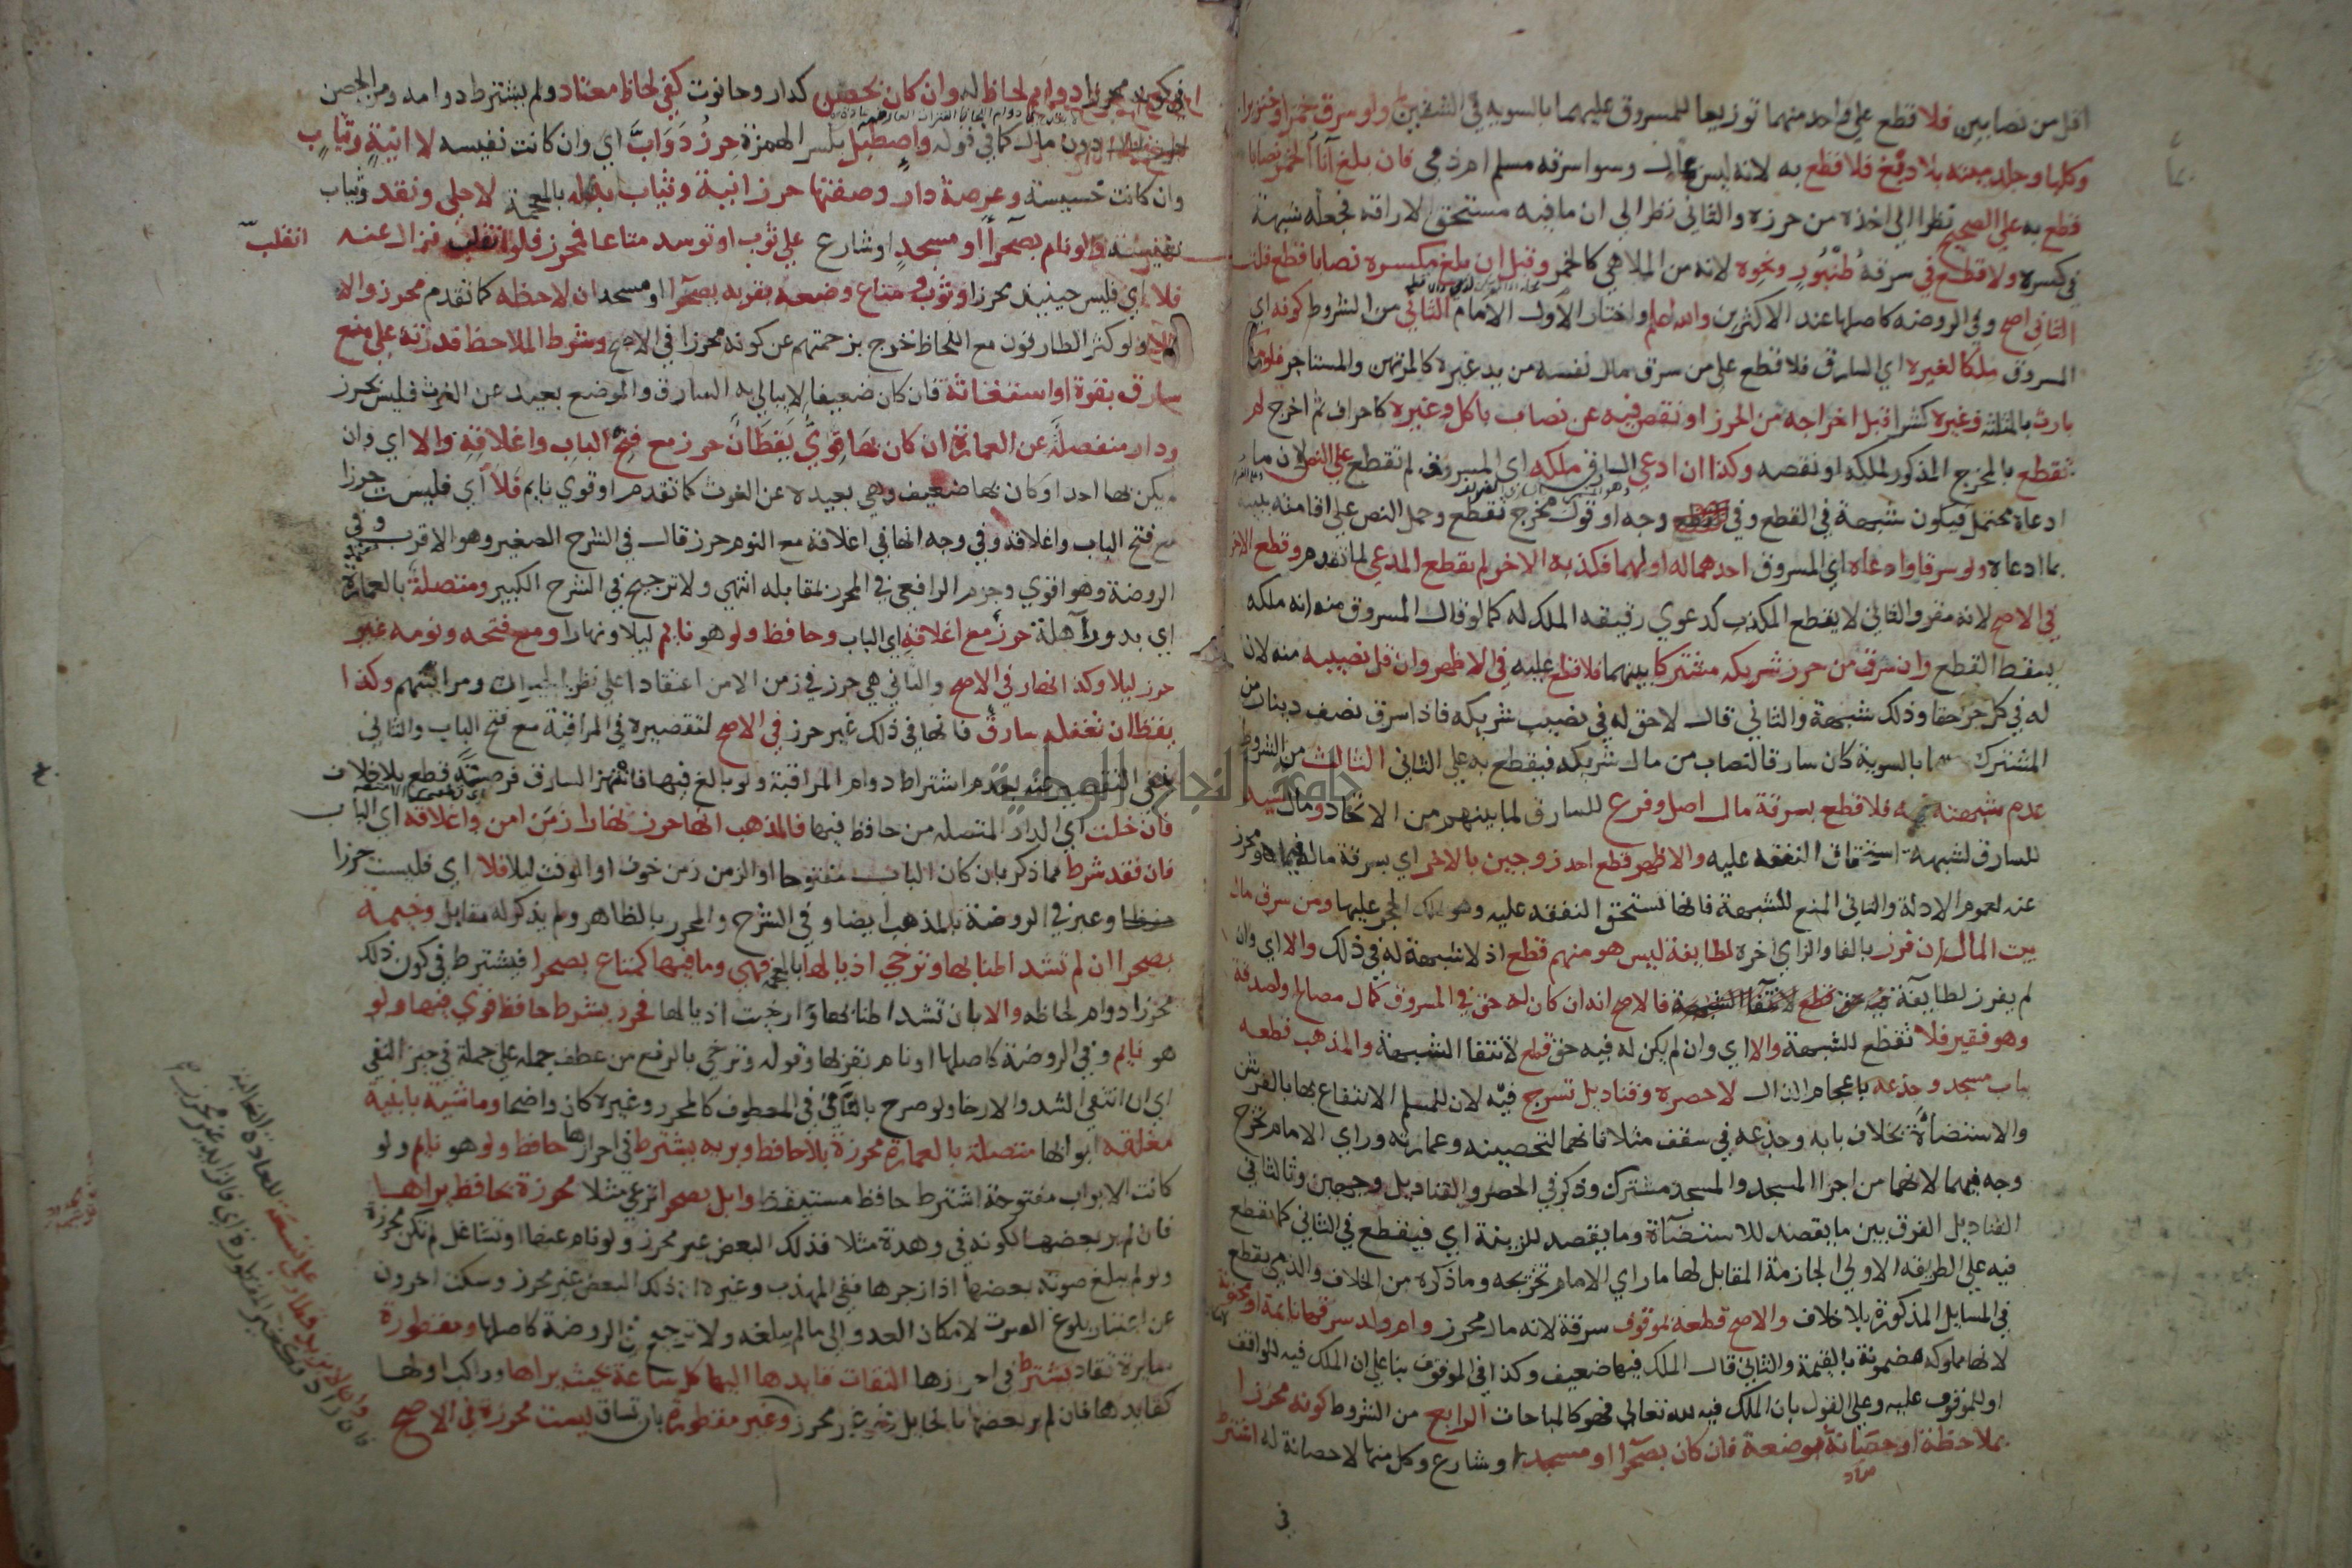 اقل من نصابين فلا قطع على واحد منهما توزيعا للمسروق عليهما بالسوية في الشقين ولو سرق خمرا وخنزيرا
وكلبا وجلد ميتة بلا دبغ فلا قطع به لانه ليس بمال وسوا سرقه مسلم ام ذمي فان بلغ انا الخمر نصابا
قطع به على الصحيح نظرا الى اخذه من حرزه والثاني نظر الى ان ما فيه مستحق الاراقة فجعله شبهة
في كسره ولا قطع في سرقة طنبور ونحوه لانه من الملاهي كالخمر وقيل ان بلغ مكسره نصابا قطع قلت
الثاني اصح وفي الروضة كاصلها عند الاكثرين والله اعلم واختار الاول الامام الثاني من الشروط كونه اي
المسروق ملكا لغيره اي السارق فلا قطع على من سرق مال نفسه من يد غيره كالمرتهن والمستاجر فلو ملكه
بارث بالمثلثة وغيره كشرا قبل اخراجه من الحرز او نقص فيه عن نصاب باكل وغيره كاحراق ثم اخرج لم
يقطع بالمخرج المذكور لملكه او نقصه وكذا ان ادعى السارق ملكه اي المسروق لم تقطع على النص لان ما
ادعاه محتمل فيكون شبهة في القطع وفي وجه او قول مخرج تقطع وحمل النص على اقامته بينة
بما ادعاه ولو سرقا وادعاه اي المسروق احدهما له او لهما فكذبه الاخر لم يقطع المدعي لما تقدم وقطع الاخر
في الاصح لانه مقر والثاني لا يقطع المكذب كدعوى رفيقه الملك له كما لو قال المسروق منه انه ملكه
يسقط القطع وان سرق من حرز شريكه مشتركا بينهما فلا قطع عليه في الاظهر وان قل نصيبه منه لان
له في كل جز حقا وذلك شبهة والثاني قال لا حق له في نصيب شريكه فاذا سرق نصف دينار من
المشترك بينهما بالسوية كان سارقا لنصاب من مال شريكه فيقطع به على الثاني الثالث من الشروط
عدم شبهته فيه فلا قطع بسرقة مال اصل وفرع للسارق لما بينهم من الاتحاد ومال سيد
للسارق لشبهة استحقاق النفقة عليه والاظهر قطع احد زوجين بالاخر اي بسرقة ماله فيما هو محرز
عنه لعموم الادلة والثاني المنع للشبهة فانها تستحق النفقة عليه وهو يملك الحجر عليها ومن سرق مال
بيت المال ان فرز بالفا والزاي اخره لطايفة ليس هو منهم قطع اذ لا شبهة له في ذلك والا اي وان
لم يفرز لطايفة فالاصح انه ان كان له حق في المسروق كمال مصالح ولصدقة
وهو فقير فلا تقطع للشبهة والا اي وان لم يكن له فيه حق قطع لانتفا الشبهة والمذهب قطعه
بباب مسجد وجذعه باعجام الذال لا حصره وقناديل تسرج فيه لان للمسلم الانتفاع بها بالفرش
والاستضاة بخلاف بابه وجذعه في سقف مثلا فانهما لتحصينه وعمارته وراي الامام تخرج
وجه فيهما لانهما من اجزا المسجد والمسجد مشترك وذكر في الحصر والقناديل وجهين وثالثا في
القناديل الفرق بين ما يقصد للاستضاة وما يقصد للزينة اي فيقطع في الثاني كما يقطع
فيه على الطريقة الاولى الجازمة المقابل لها ما راي الامام تخريجه وما ذكره من الخلاف والذمي يقطع
في المسايل المذكورة بلا خلاف والاصح قطعه بموقوف سرقة لانه مال محرز وام ولد سرقها نايمة او مجنونة
لانها مملوكة مضمونة بالقيمة والثاني قال الملك فيها ضعيف وكذا في الموقوف بنا على ان الملك فيه للواقف
او للموقوف عليه وعلى القول بان الملك فيه لله تعالى فهو كالمباحات الرابع من الشروط كونه محرزا
بملاحظة او حصانة موضعه فان كان بصحرا او مسجد او شارع وكل منها لا حصانة له اشترط
في
في كونه محرزا دوام لحاظ له وان كان بحصن كدار وحانوت كفى لحاظ معتاد ولم يشترط دوامه ومن الحصن
دون مال كما في قوله واصطبل بكسر الهمزة حرز دواب اي وان كانت نفيسة لا انية وثياب
وان كانت خسيسة وعرصة دار وصفتها حرز انية وثياب بذلة بالمعجمة لا حلي ونقد وثياب
نفيسة ولو نام بصحرا او مسجد او شارع على ثوب او توسد متاعا فمحرز فلو انقلب فزال عنه
انقلب
فلا اي فليس حينيذ محرزا وثوب ومتاع وضعه بقربه بصحرا او مسجد ان لاحظه كما تقدم محرز والا
فلا ولو كثر الطارقون مع اللحاظ خرج بزحمتهم عن كونه محرزا في الاصح وشرط الملاحظ قدرته على منع
سارق بقوة او استغاثة فان كان ضعيفا لا يبالي به السارق والموضع بعيد عن الغوث فليس بحرز
ودار منفصلة عن العمارة ان كان بها قوي يقظان حرز مع فتح الباب واغلاقه والا اي وان
لم يكن بها احد او كان بها ضعيف وهي بعيدة عن الغوث كما تقدم او قوي نايم فلا اي فليست حرزا
مع فتح الباب واغلاقه وفي وجه انها في اغلاقه مع النوم حرز قال في الشرح الصغير وهو الاقرب وفي
الروضة وهو اقوى وجزم الرافعي في المحرز بمقابله انتهى ولا ترجيح في الشرح الكبير ومتصلة بالعمارة
اي بدور اهلة حرز مع اغلاقه اي الباب وحافظ ولو هو نايم ليلا ونهارا ومع فتحه ونومه غير
حرز ليلا وكذا نهارا في الاصح والثاني هي حرز في زمن الامن اعتمادا على نظر الجيران ومراقبتهم وكذا
يقظان تغفله سارق فانها في ذلك غير حرز في الاصح لتقصيره في المراقبة مع فتح الباب والثاني
ينفي التقصير عنه بعدم اشتراط دوام المراقبة ولو بالغ فيها فانتهز السارق فرصته قطع بلا خلاف
فان خلت اي الدار المتصلة من حافظ فيها فالمذهب انها حرز نهارا زمن امن واغلاقه اي الباب
فان فقد شرط مما ذكر بان كان الباب مفتوحا او الزمن زمن خوف او الوقت ليلا فلا اي فليست حرزا
وعبر في الروضة بالمذهب ايضا وفي الشرح والمحرر بالظاهر ولم يذكر له مقابل وخيمة
بصحرا ان لم تشد اطنابها وترخى اذيالها بالمعجمة فهي وما فيها كمتاع بصحرا فيشترط في كون ذلك
محرزا دوام لحاظه والا بان تشد اطنابها وارخيت اذيالها فحرز بشرط حافظ قوي فيها ولو
هو نايم وفي الروضة كاصلها او نام بقربها وقوله وترخى بالرفع من عطف جملة على جملة في حيز النفي
اي ان انتفى الشد والارخا ولو صرح بالنافي في المعطوف كالمحرر وغيره كان واضحا وماشية بابنية
مغلقة ابوابها متصلة بالعمارة محرزة بلا حافظ وببرية يشترط في احرازها حافظ ولو هو نايم ولو
كانت الابواب مفتوحة اشترط حافظ مستيقظ وابل بصحرا ترعى مثلا محرزة بحافظ يراها
فان لم ير بعضها لكونه في وهدة مثلا فذلك البعض غير محرز ولو نام عنها او تشاغل لم تكن محرزة
ولو لم يبلغ صوته بعضها اذا زجرها ففي المهذب وغيره ان ذلك البعض غير محرز وسكت اخرون
عن اعتبار بلوغ الصوت لامكان العدو الى ما لم يبلغه ولا ترجيح في الروضة كاصلها ومقطورة
سايرة تقاد يشترط في احرازها التفات قايدها اليها كل ساعة بحيث يراها وراكب اولها
كقايدها فان لم ير بعضها لحايل فهو غير محرز وغير مقطورة بان تساق ليست محرزة في الاصح